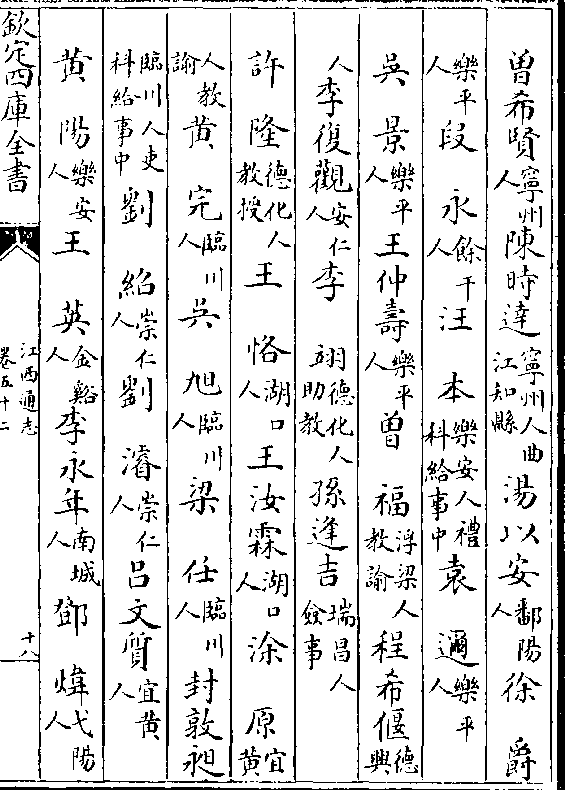 曾希賢寧州人陳時達寧州人曲江知縣湯以安鄱陽人徐爵
樂平人段永餘干人汪本樂安人禮科給事中袁邇樂平人
吳景樂平人王仲壽樂平人曾福浮梁人教諭程希偃德興
人李復觀安仁人李翊德化人助教孫逢吉瑞昌人僉事
許隆德化人教授王恪湖口人王汝霖湖口人涂原宜黃
人教諭黄完臨川人吳旭臨川人梁任臨川人封敦昶
臨川人吏科給事中劉紹崇仁人劉濬崇仁人呂文質宜黃人
黄陽樂安人王英金谿人李永年南城人鄧煒弋陽人
欽定四庫全書
江西通志
卷五十二
十八